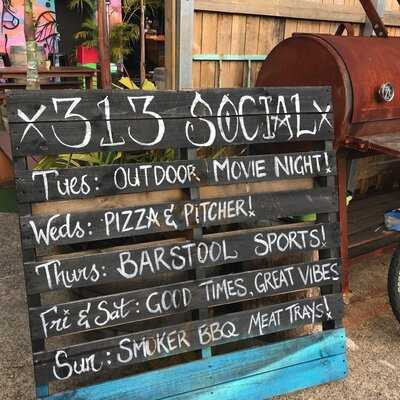 x313 SOCIALx
Tues: OUTDOOR MOVIE NIGHT!
Weds: PIZZA & PITCHER!
Thurs: BARSTOOL SPORTS!
Fri & Sat: GOOD TIMES, GREAT VIBES
Sun: SMOKER BBQ MEAT TRAYS!